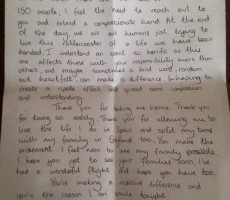 150 people, I feel the need to reach out to
you and extend a compassionate hand. At the end
of the day, we are all humans just trying to
live this rollercoaster of a life we have been
handed. I understand an event so horrific as this
one affects those with your responsibility more than
others, and maybe sometimes a kind word, random
but heartfelt, can make a difference. I'm hoping to
create a ripple effect and spread some compassion
and understanding.
Thank you for taking me home. Thank you
for doing so safely. Thank you for allowing me to
live the life I do in Spain and split my time
with my family in England too. You make the
excitement I feel now to see my family possible.
I hope you get to see your families soon. I've
had a wonderful flight and hope you have too.
You're making a massive difference and
you're the reason I can smile tonight.